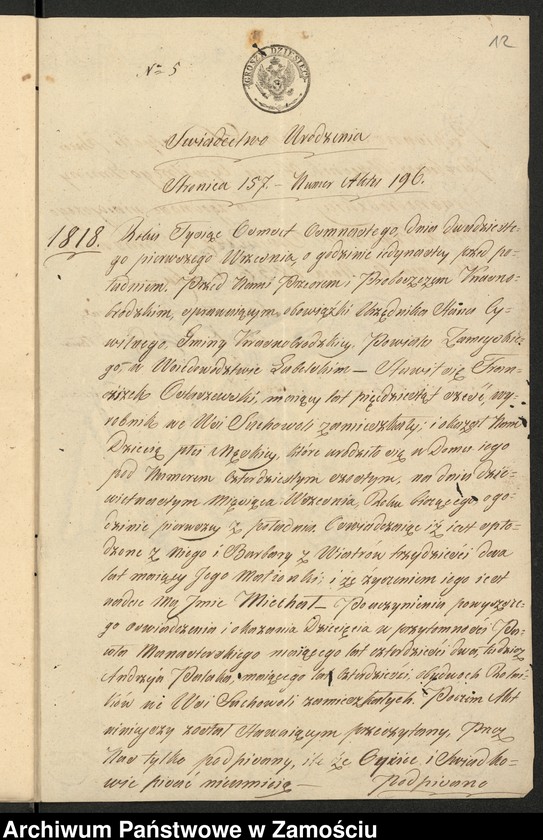 12
No 5
GROSZY DZIESIĘĆ
Swiadectwo Urodzenia
Stronica 157. – Numer Aktu 196.
1818. Roku Tysiąc Osmset Osmnastego, dnia dwudzieste-
go pierwszego Wrzesnia, o godzinie iedynastey przed po-
łudniem. Przed Nami Przeorem i Proboszczem Krasno-
brodzkim, sprawuiącym obowiązki Urzędnika Stanu Cy-
wilnego, Gminy Krasnobrodzkiey, Powiatu Zamoyskie-
go, w Woiewodztwie Lubelskim – Stawił się Fran-
ciszek, maiący lat pięćdziesiąt sześć, wy-
robnik we Wsi Suchowoli zamieszkały; i okazał Nam
Dziecię płci Męzkiey, które urodziło się w Domu iego
pod Numerem czterdziestym szostym, na dniu dzie-
wietnastym Miesiąca Wrzesnia, Roku bieżącego o go-
dzinie pierwszey z południa. Oswiadczaiąc iż iest spło-
dzone z Niego i Barbary z Wiatrow trzydziesci dwa
lat maiącey Jego Małżonki; i że życzeniem iego iest
nadać Mu Imie Michał – Po uczynieniu powyższe-
go oswiadczenia i okazania Dziecięcia w przytomności Pa-
wła maiącego lat czterdzieści dwa, tudzież
Andrzeja, maiącego lat czterdzieści obydwoch Rolni-
ków we Wsi Suchowoli zamieszkałych. Poczem Akt
ninieyszy został Stawaiącym przeczytany, Przez
Nas tylko podpisany, ile że Oyciec i Swiadko-
wie pisać nieumieią – Podpisano
Archiwum Państwowe w Zamościu